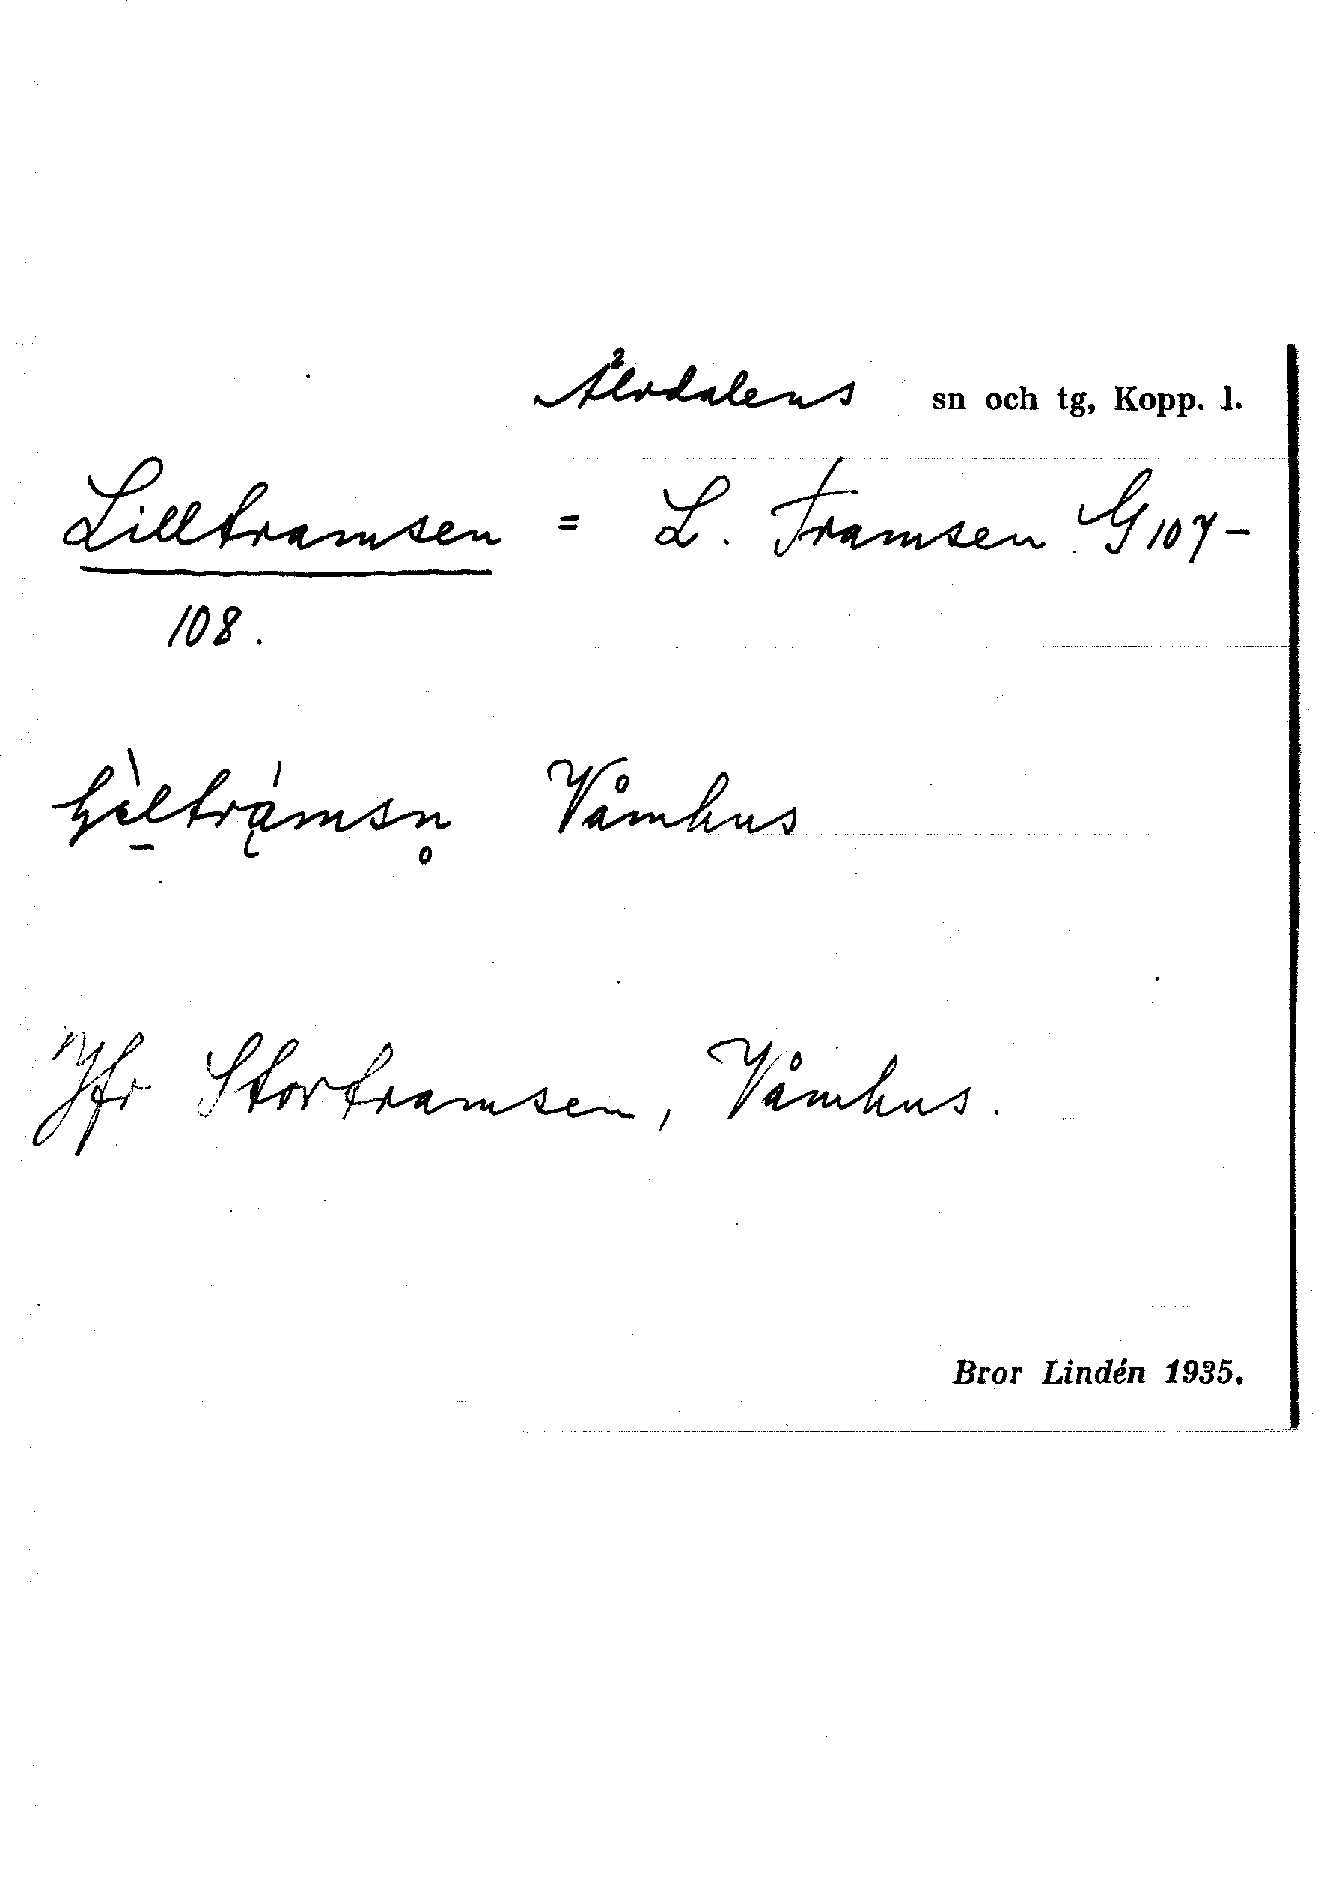 Älvdalens sn och tg, Kopp. l.
Lilltramsen = L. Tramsen G 107-
108.
Våmhus
Jfr Stortramsen, Våmhus.
Bror Lindén 1935.